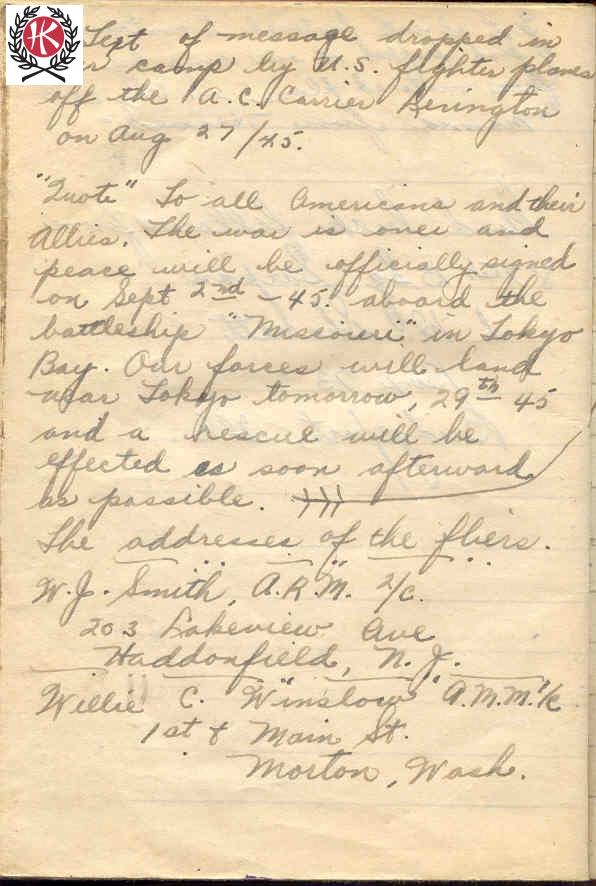 HK
Text of message dropped in
camp by U.S. fighter planes
off the A.C. Carrier Benington
on Aug 27/45.
"Quote" To all Americans and their
Allies. The war is over and
peace will be officially signed
on Sept 2nd - 45. aboard the
battleship "Missouri" in Tokyo
Bay. Our forces will land
near Tokyo tomorrow, 29th 45
and a rescue will be
effected as soon afterward
as possible.
The addresses of the fliers.
W.J. Smith, A.R.M. 2/c.
203 Lakeview Ave
Haddonfield, N.J.
Willie C. "Winslow" A.M.M. 1/c
1st & Main St.
Morton, Wash.